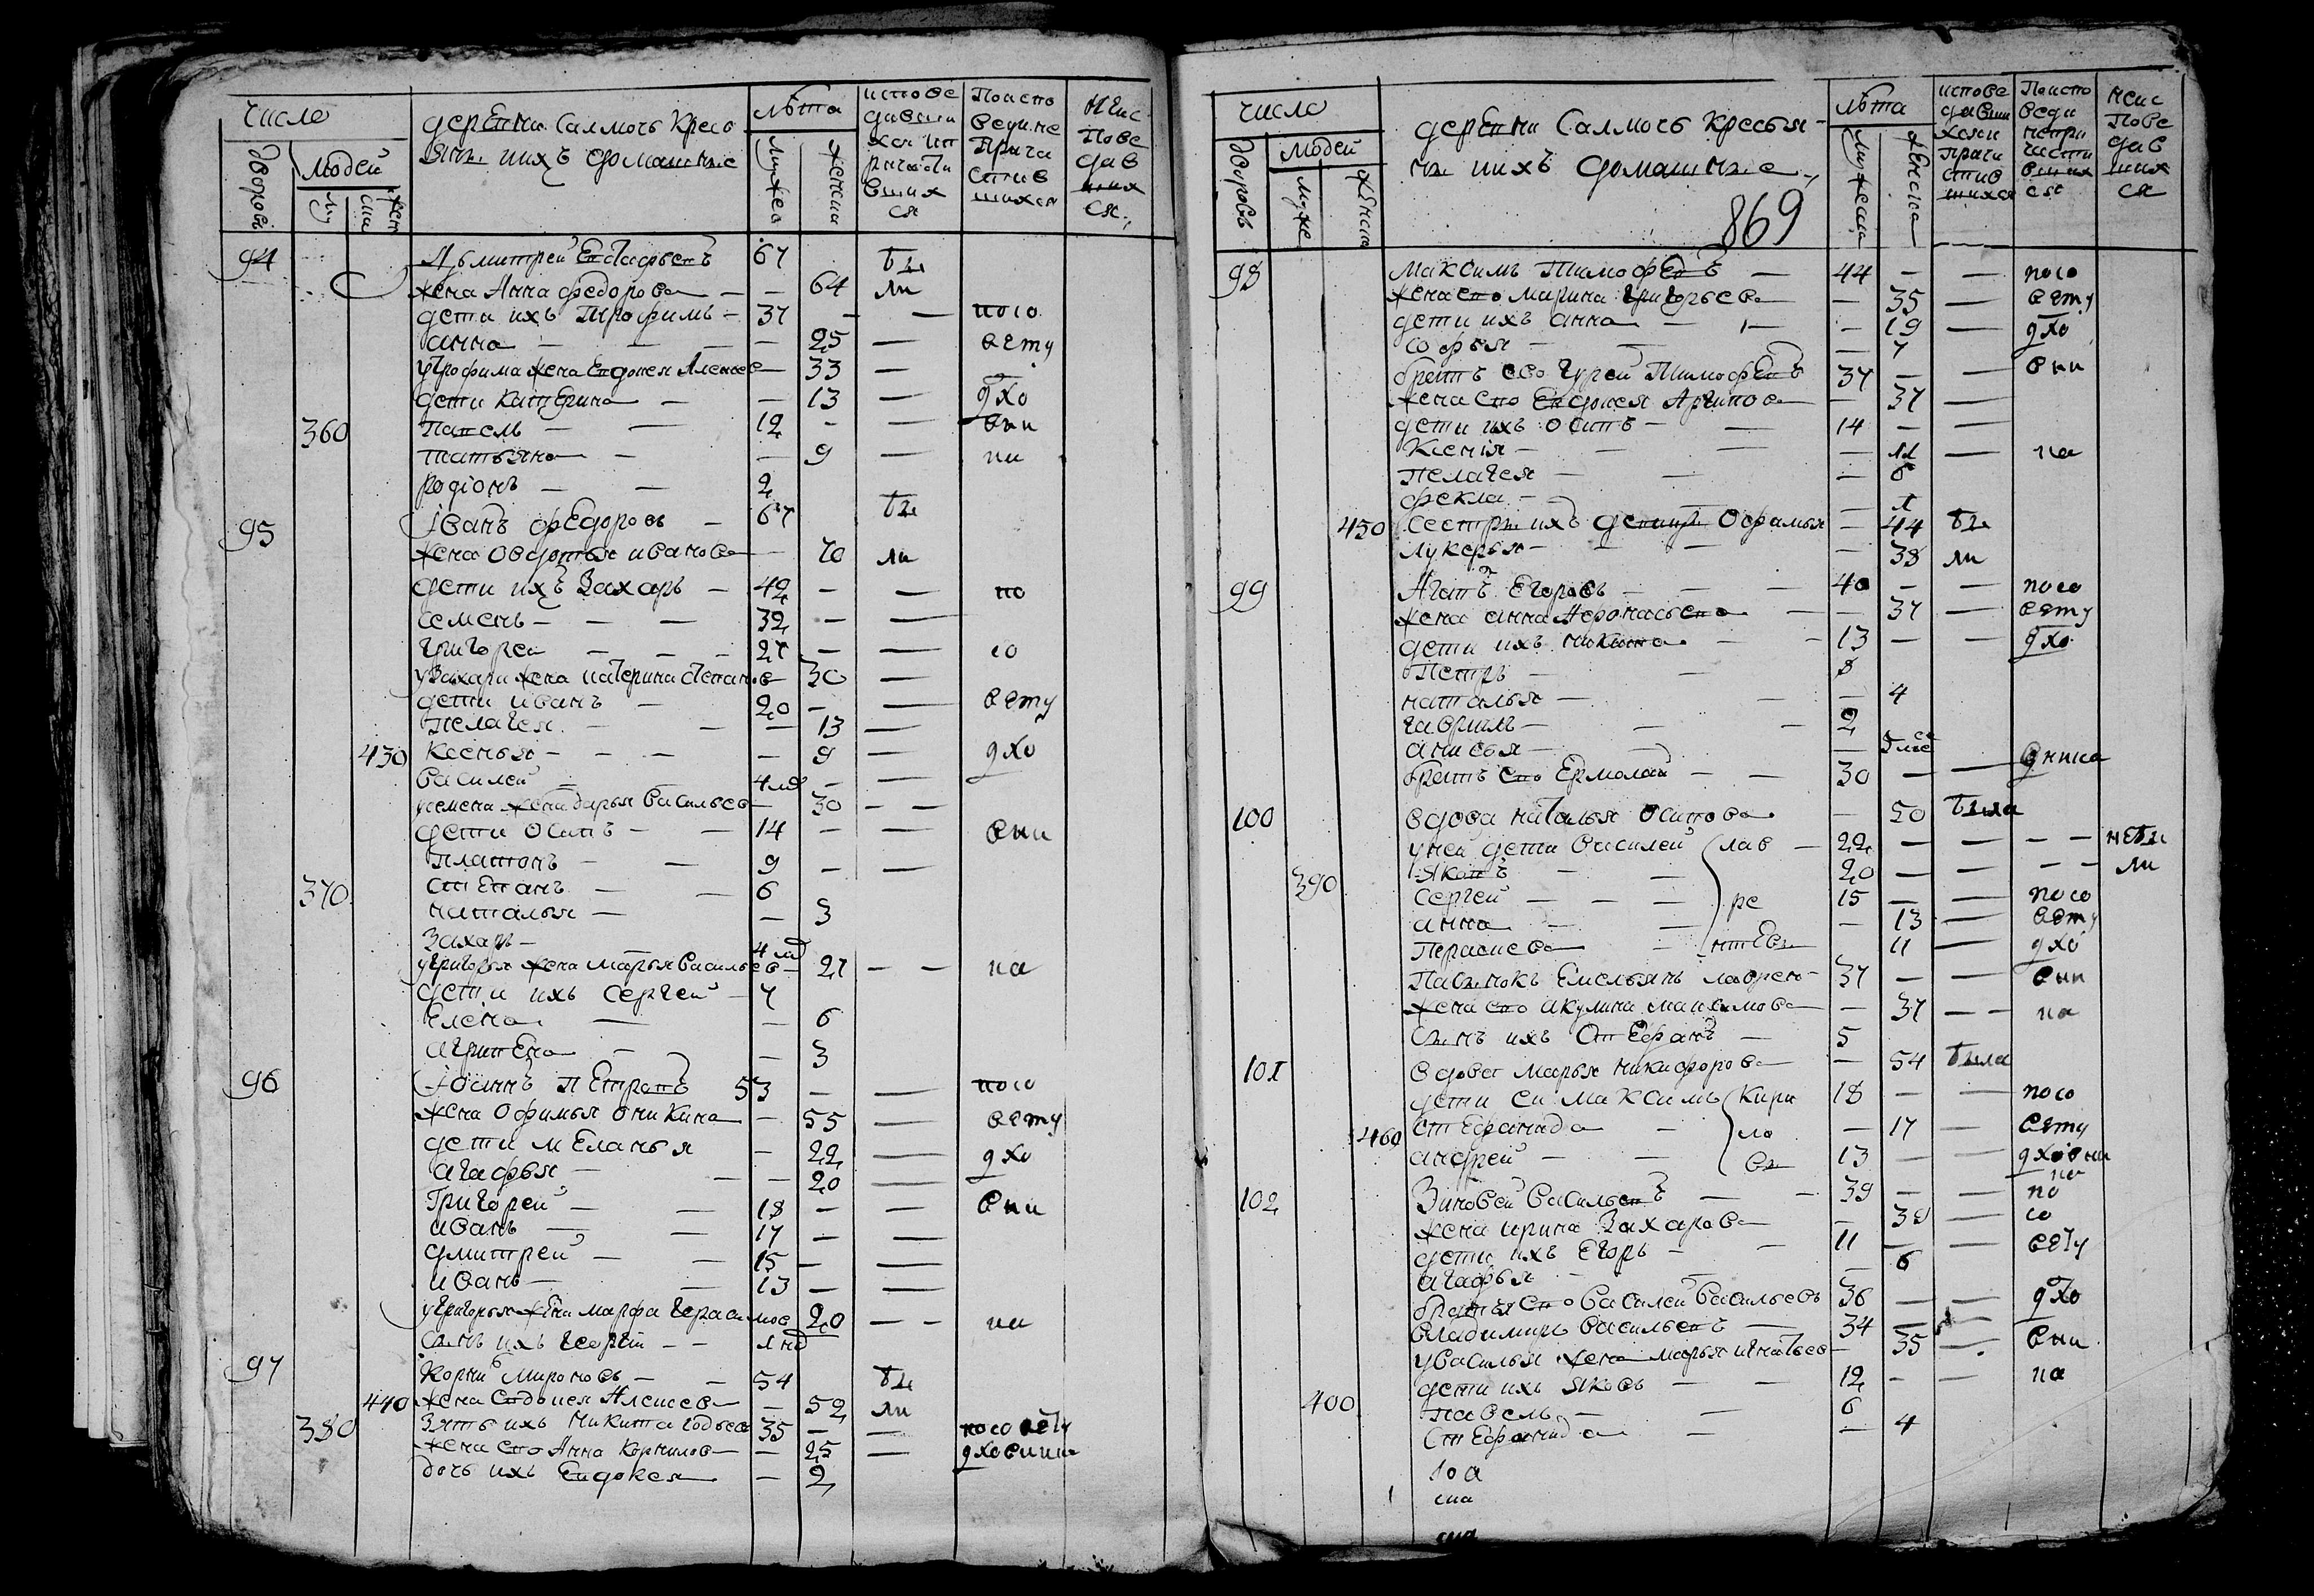 число
деревни Салмочь Кресь
янѣ ихъ домашнѣе
лѣта
дворовъ
людей
му
женска
мужеска
женска
исповедавшихся и причастившихся
По исповеди не причастившихся
Неисповедавшихся
94 Дьмитрей Евстафьевъ 67 бы
жена Анна федорова — 64 ли
дети ихъ Трофимъ — 37 — — по со
анна — 25 — вету
у Трофима жена Евдокея Алексее — 33 —
дети Катерина — 13 — дхо
360 Павелъ — 12 — — вни
татьяна — 9 — ка
родіонъ — 2
95 Іванъ федоровъ — 67 бы
жена Овдотья иванова — 70 ли
дети ихъ Захаръ — 42 — — по
семенъ — 32 — —
григорей — 27 — — со
у Захара жена катерина степанов — 30 —
дети иванъ — 20 — — вету
пелагея — 13 —
430 ксенья — 9 — дхо
василей — 4 мд — —
у семена жена дарья васильев — 30 — —
дети осипъ — 14 — — вни
платонъ — 9 — —
370 степанъ — 6
наталья — 3
Захаръ — 4 мд
у григорья жена марья васильев — 27 — — ка
дети ихъ сергей — 7
Елена — 6
агрипена — 3
96 Іоаннъ петровъ 53 — — по со
жена Офимья оникина — 55 — вету
дети меланья — 22 — дхо
агафья — 20 —
Григорей — 18 — — вни
иванъ — 17 — —
дмитрей — 15 — —
иванъ — 13 — —
у григорья жена марфа герасимов 20 — — ка
сынъ ихъ георгій — —
97 Корнилъ мироновъ — 54 бы
440 жена Евдокея Алексеев — 52 ли
380 Зять ихъ никита 35 — — по со вету
жена ево Анна Корнилов — 25 — дховнии
дочь ихъ Евдокея — 2
число
деревни Салмочь кресья-
нѣ ихъ домашнѣе
869
лѣта
дворовъ
людей
муже
женска
мужеска
женска
исповедавшихся и причастившихся
По исповеди не причастившихся
неисповедавшихся
98 максимъ Тимофевъ — 44 — — по со
жена ево марина григорьева — 35 — вету
дети ихъ анна — 19 — дхо
софья — 7
братъ ево гурей Тимофевъ 37 — — вни
жена ево Евдокея Архипова — 37 —
дети ихъ осипъ — 14 — —
Ксенія — 11 — ка
пелагея — 6
фекла — 1
450 сестры ихъ девицы Офимья — 44 бы
лукерья — 38 ли
99 Агапъ Егоровъ — 40 — — по со
жена анна Афонасьева — 37 — вету
дети ихъ никита — 13 — — дхо
Петръ — 8
наталья — 4
гаврилъ — 2
анисья —
братъ ево Ермолай — 30 — — вника
100 вдова наталья осипова — 50 была
у ней дети василей лав — 22 — — — — не бы
Яковъ — 20 — — — — ли
390 Сергей — ре 15 — — по со
анна — 13 — вету
Парасковья — нтевы — 11 — дхо
Пасынокъ Емельянъ лаврен — 37 — — вни
жена ево акулина максимова — 37 — — ка
сынъ ихъ Стефанъ — 5
101 вдова марья никифорова — 54 была
дети ей максимъ Кири 18 — — по со
460 стефанида — ло — 17 — вету
андрей — вы 13 — — дховни
ка
102 Зиновей васильевъ — 39 — — по
жена ирина Захарова — 39 — со
дети ихъ Егоръ — 11 — — вету
агафья — 6
братья ево василей васильевъ 36 — — дхо
владимиръ васильевъ — 34 — —
у василья жена марья игнатьев — 35 — вни
дети ихъ яковъ — 12 — — ка
400 павелъ — 6
Стефанида — 4